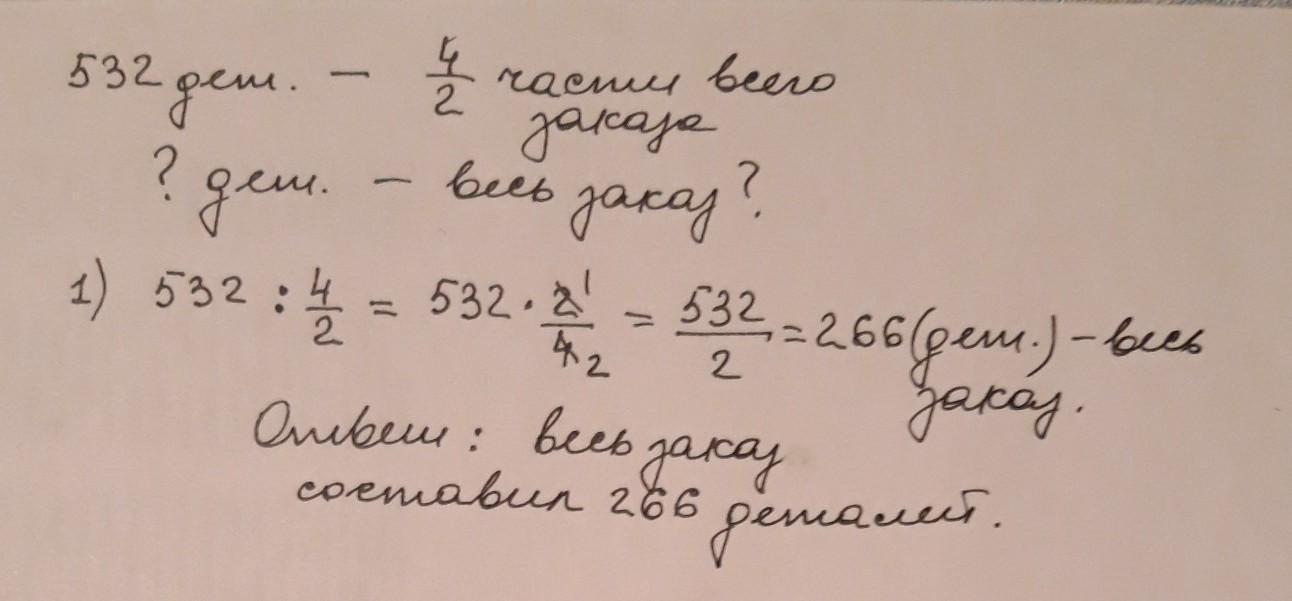 532 дет. — 4/2 части всего
заказа
? дет. — весь заказ?
1) 532 : 4/2 = 532 · 2̸¹/4̸₂ = 532/2 = 266 (дет.) – весь
заказ.
Ответ: весь заказ
составил 266 деталей.